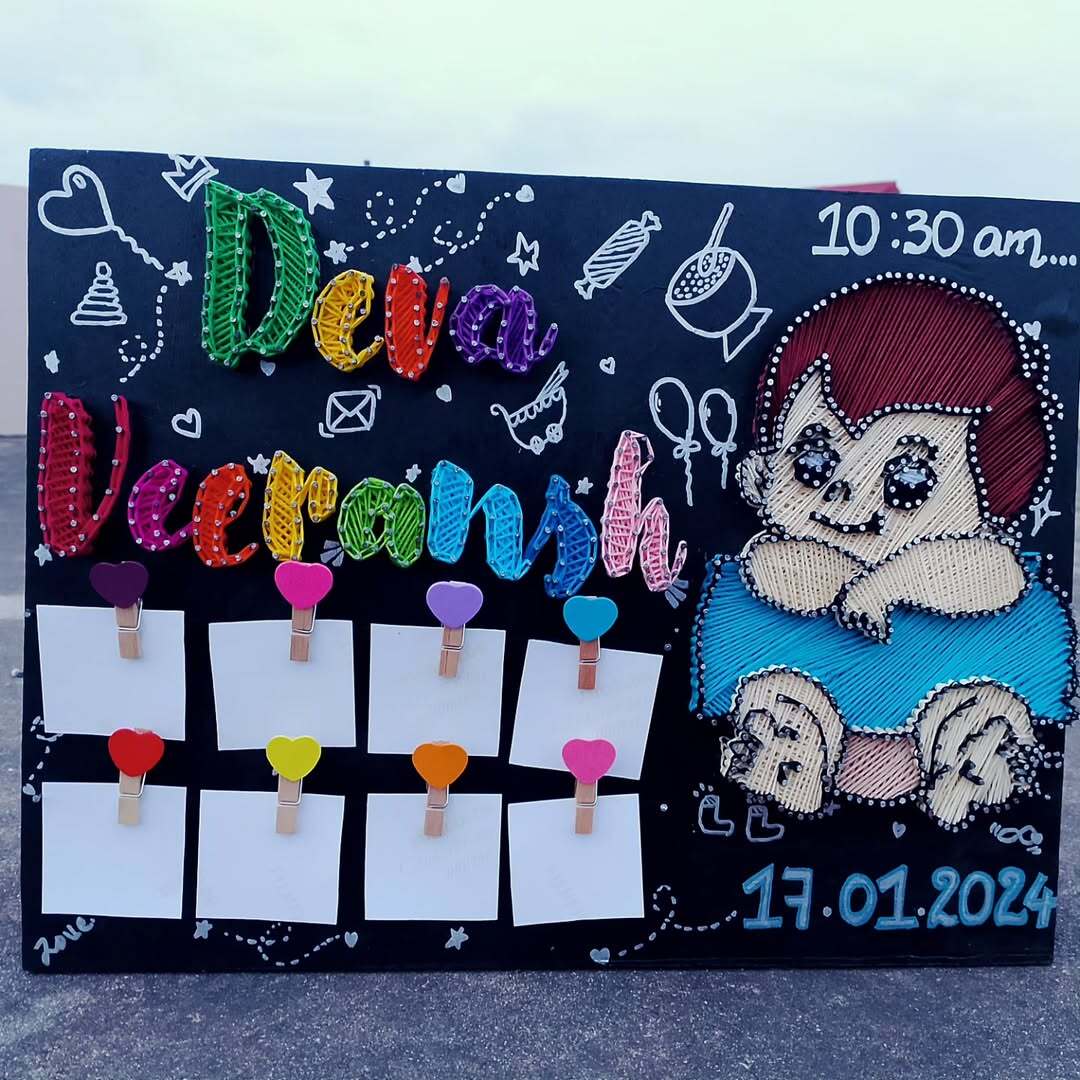 10:30 am...
Deva
Veeransh
17.01.2024
Love